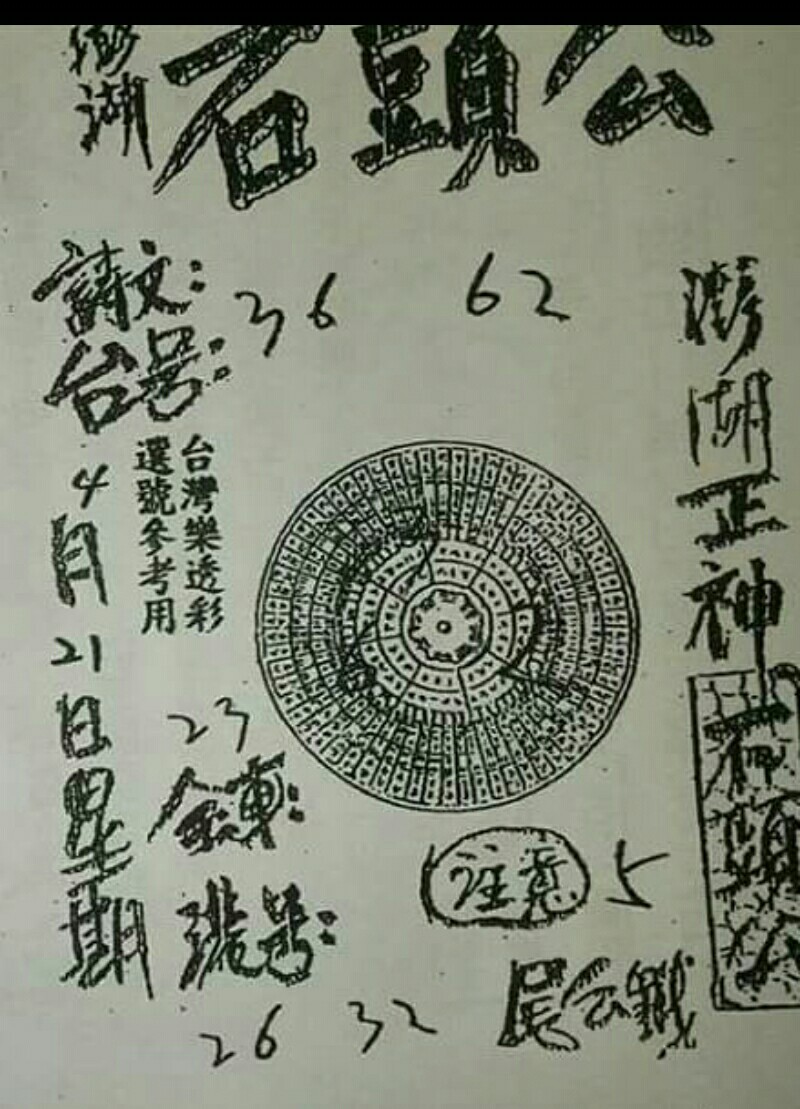 澎湖
石頭公
詩文:
36 62
台号:
台灣樂透彩
選號參考用
4月21日星期
23
金東:
港号:
26 32
注意 5
尾公
澎湖正神
石頭公